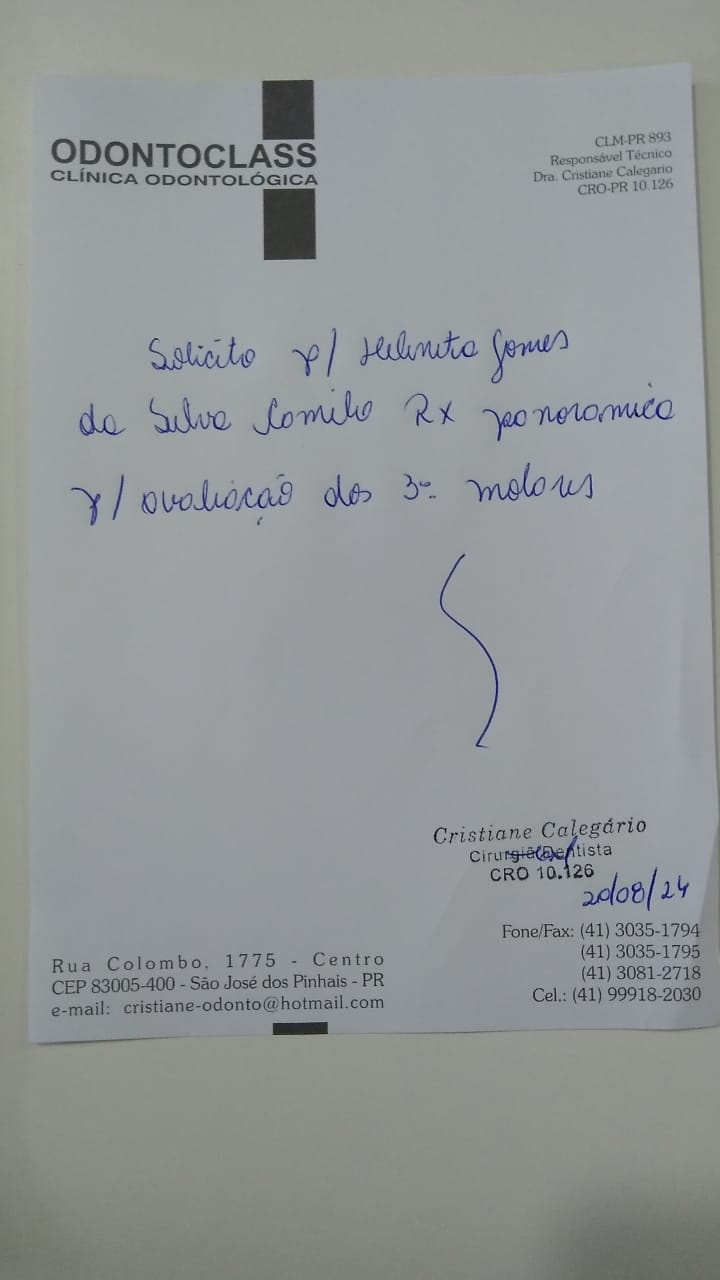 ODONTOCLASS
CLÍNICA ODONTOLÓGICA
CLM-PR 893
Responsável Técnico
Dra. Cristiane Calegario
CRO-PR 10.126
Solicito p/ Gomes
da Silva Camilo Rx panoramica
p/ avaliação dos 3os molares
Cristiane Calegário
Cirurgiã Dentista
CRO 10.126
20/08/24
Fone/Fax: (41) 3035-1794
(41) 3035-1795
(41) 3081-2718
Cel.: (41) 99918-2030
Rua Colombo, 1775 - Centro
CEP 83005-400 - São José dos Pinhais - PR
e-mail: cristiane-odonto@hotmail.com